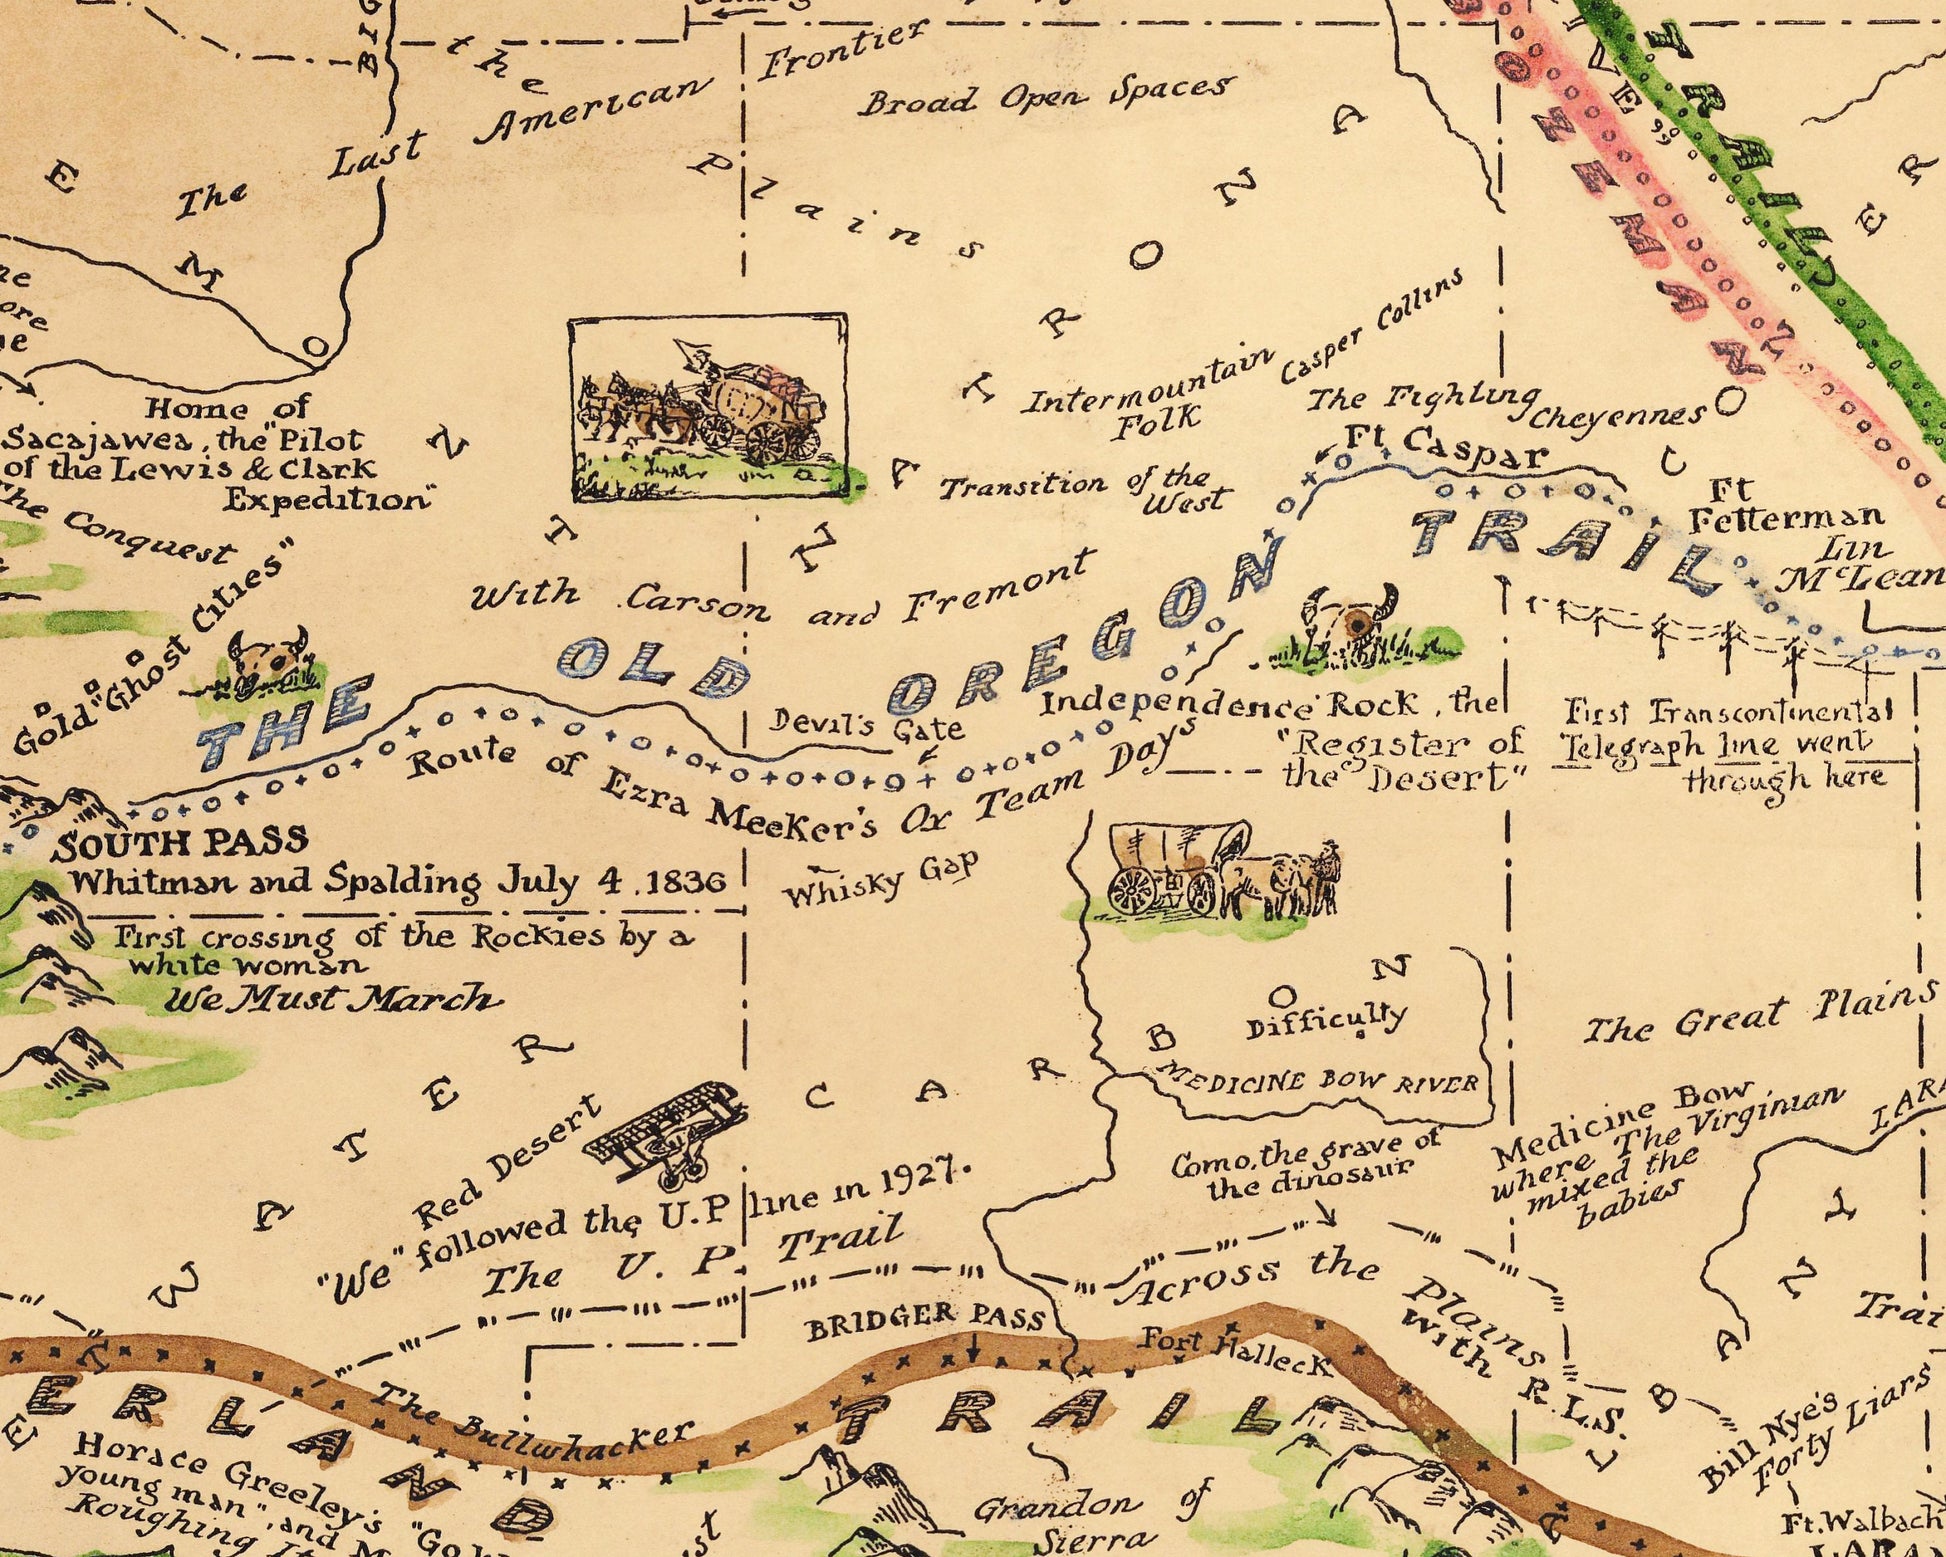 BIG
The Last American Frontier
the Plains
Broad Open Spaces
TRAIL
BOZEMAN
Home of
Sacajawea, the "Pilot
of the Lewis & Clark
Expedition"
The Conquest
Gold "Ghost Cities"
NATRONA
Intermountain
Folk
Casper Collins
The Fighting Cheyennes
Ft Caspar
Transition of the
West
Ft
Fetterman
Lin
McLean
With Carson and Fremont
THE OLD OREGON TRAIL
Devil's Gate
Route of Ezra Meeker's Ox Team Days
Independence Rock, the
"Register of
the Desert"
First Transcontinental
Telegraph line went
through here
SOUTH PASS
Whitman and Spalding July 4, 1836
First crossing of the Rockies by a
white woman
We Must March
Whisky Gap
FREMONT
CONVERSE
Difficulty
MEDICINE BOW RIVER
CARBON
The Great Plains
Medicine Bow
where The Virginian
mixed the
babies
Como, the grave of
the dinosaur
Red Desert
"We" followed the U.P. line in 1927.
The U. P. Trail
SWEETWATER
BRIDGER PASS
Fort Halleck
Across the Plains
With R.L.S.
ALBANY
Bill Nye's
Forty Liars
Ft. Walbach
The Bullwhacker
ERLAND TRAIL
Horace Greeley's "Go W
young man", and M
Roughing It
Grandon of
Sierra